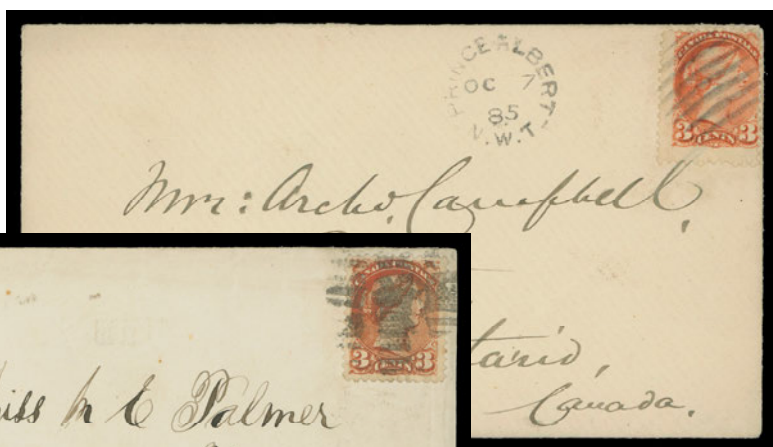 PRINCE ALBERT
OC 7
85
N.W.T.
CANADA POSTAGE
3 CENTS 3
Mrs: Archd. Campbell,
tario,
Canada.
CANADA POSTAGE
3 CENTS 3
iss M E Palmer